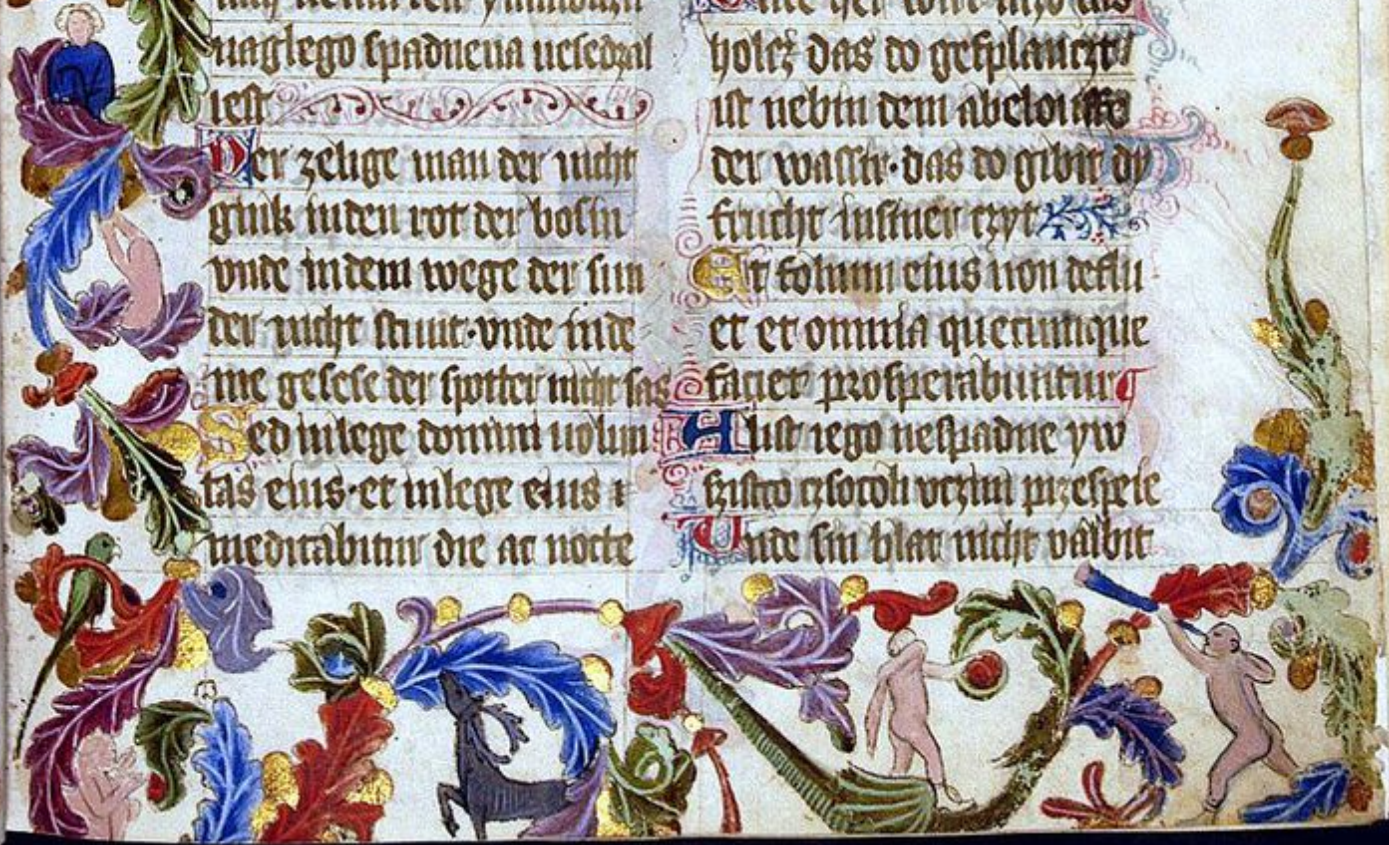 naglego spadnena uesedzal
iest
Der zelige man der nicht
gink in den rot der bosin
vnde in dem wege der sun
der nicht stunt·vnde in de
me gesese der spotter nicht sas
Sed in lege domini uolun
tas eius·et in lege eius
meditabitur die ac nocte
holcz das do gesplanczt
ist nebin dem abelouffe
der wassir·das do gibit dy
frucht in siner czyt
Et folium eius non deflu
et et omnia quecumque
faciet prosperabuntur
A list iego nespadne yw
szistko czsocoli vczini przespeie
Unde sin blat nicht valbit